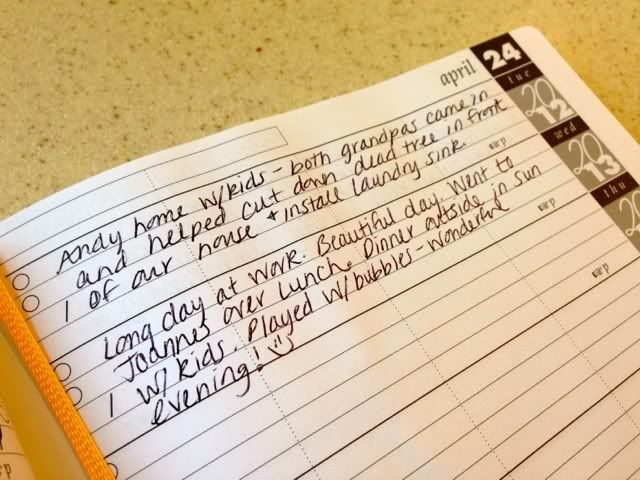 april 24
tue
2012
wed
2013
thu
Andy home w/kids - both grandpas came in
and helped cut down dead tree in front
of our house + install laundry sink.
Long day at work. Beautiful day. Went to
Joannes over lunch. Dinner outside in sun
w/ kids. Played w/bubbles - wonderful
evening!